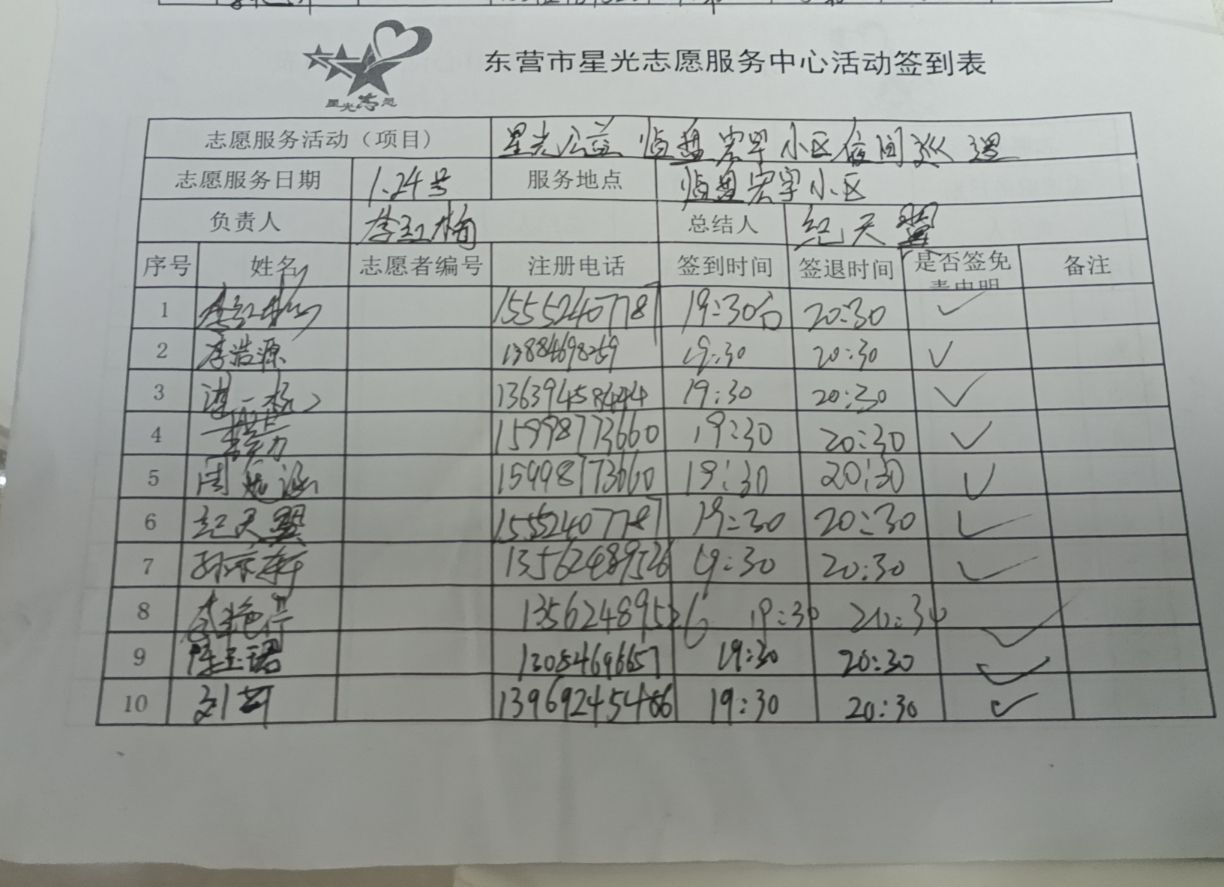 东营市星光志愿服务中心活动签到表
星光志愿
志愿服务活动（项目） 星光公益 临盘宏宇小区夜间巡逻
志愿服务日期 1.24号 服务地点 临盘宏宇小区
负责人 李红梅 总结人 纪天翼
序号 姓名 志愿者编号 注册电话 签到时间 签退时间 是否签免责申明 备注
1 李红梅 15552407787 19:30 20:30 ✓
2 李浩源 13884698259 19:30 20:30 ✓
3 19:30 20:30 ✓
4 15998773660 19:30 20:30 ✓
5 周 涵 15998773660 19:30 20:30 ✓
6 纪天翼 15552407787 19:30 20:30 ✓
7 孙 轩 13562489526 19:30 20:30 ✓
8 李艳 13562489526 19:30 20:30 ✓
9 陈玉珺 13054696657 19:30 20:30 ✓
10 刘 19:30 20:30 ✓